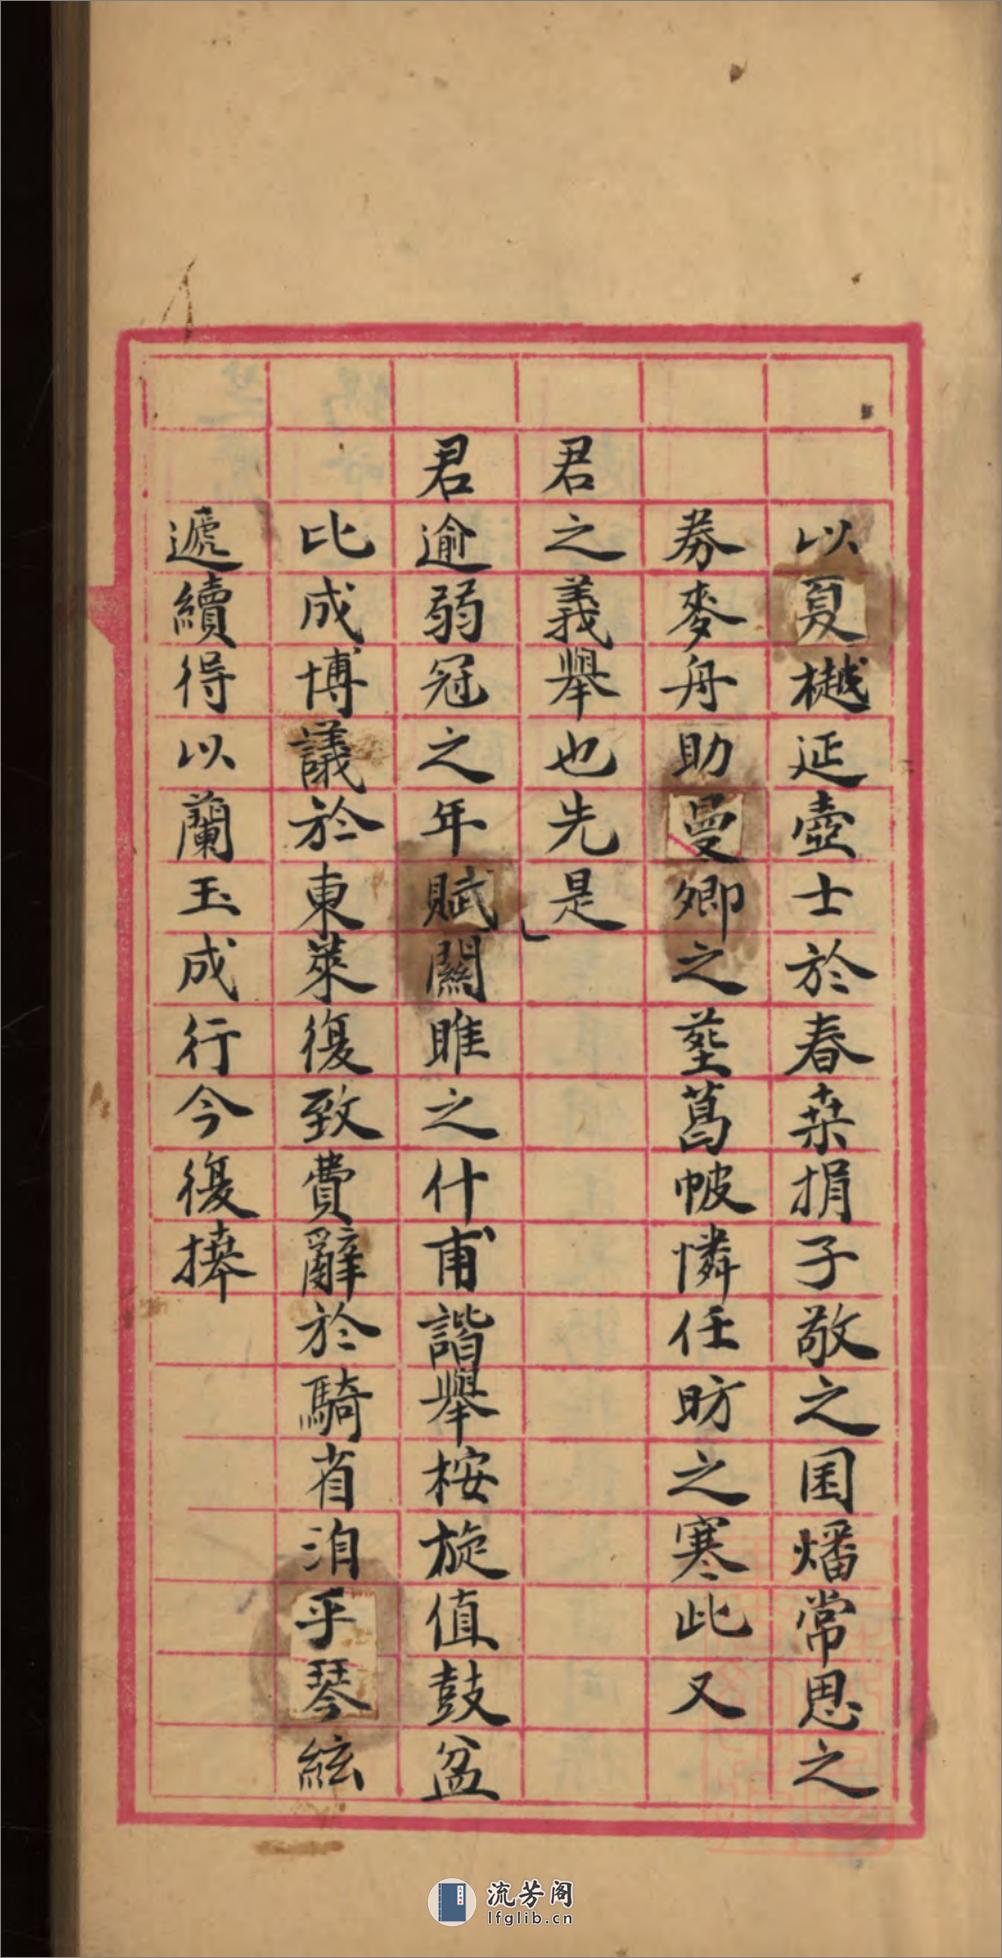 以夏樾延壺士於春桒捐子敬之囷燔常思之
券麥舟助曼卿之塟葛帔憐任昉之寒此又
君之義舉也先是
君逾弱冠之年賦關雎之什甫諧舉桉旋值鼓盆
比成博議於東萊復致費辭於騎省洎乎琴絃
遞續得以蘭玉成行今復捧
流芳阁
lfglib.cn